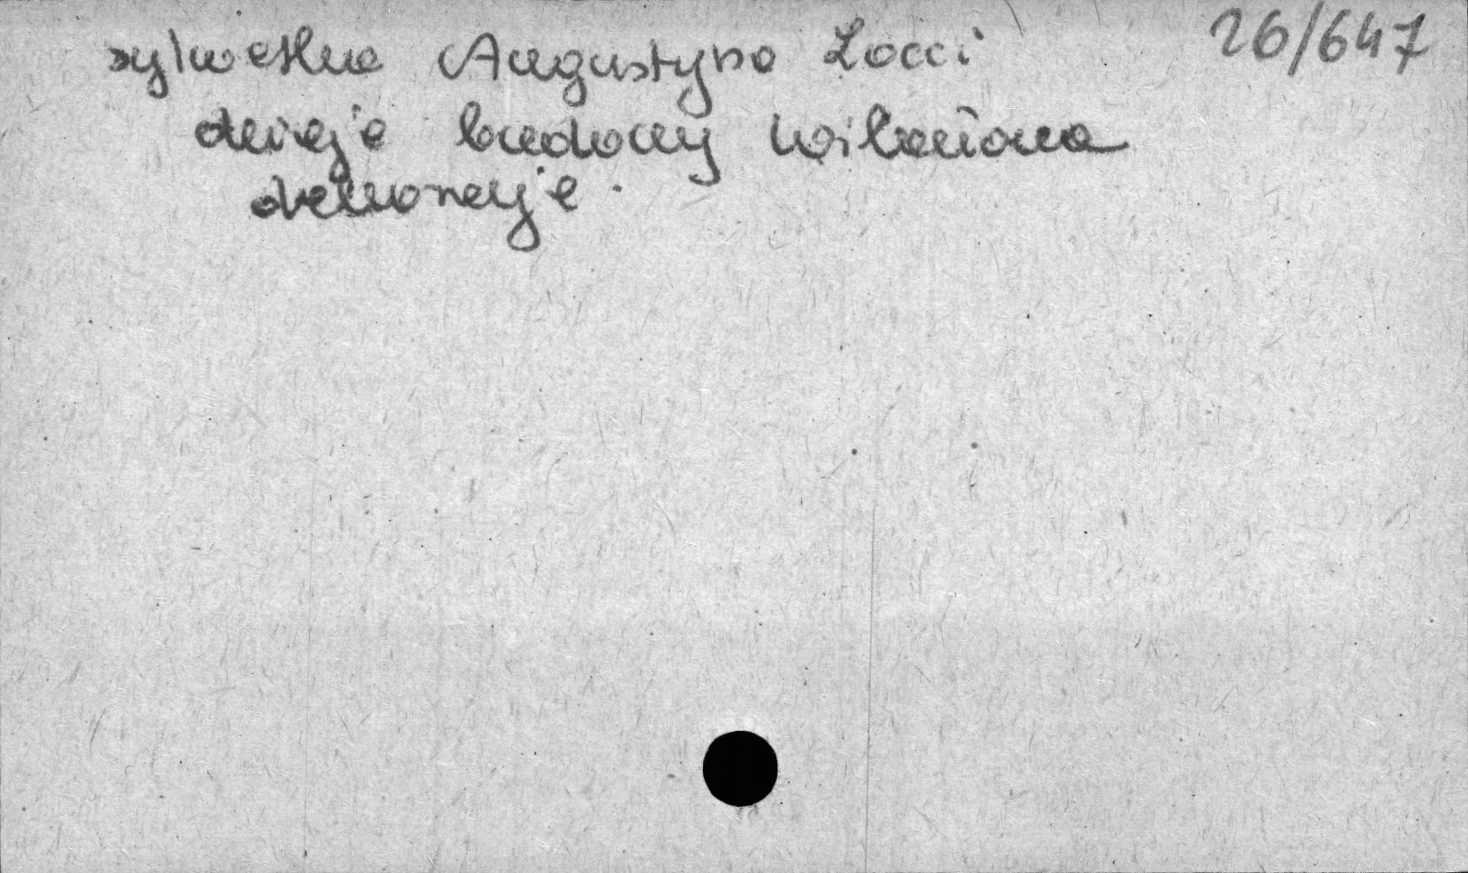 26/647
sylwetka Augustyna Locci
dzieje budowy Wilanowa
dekoracje.